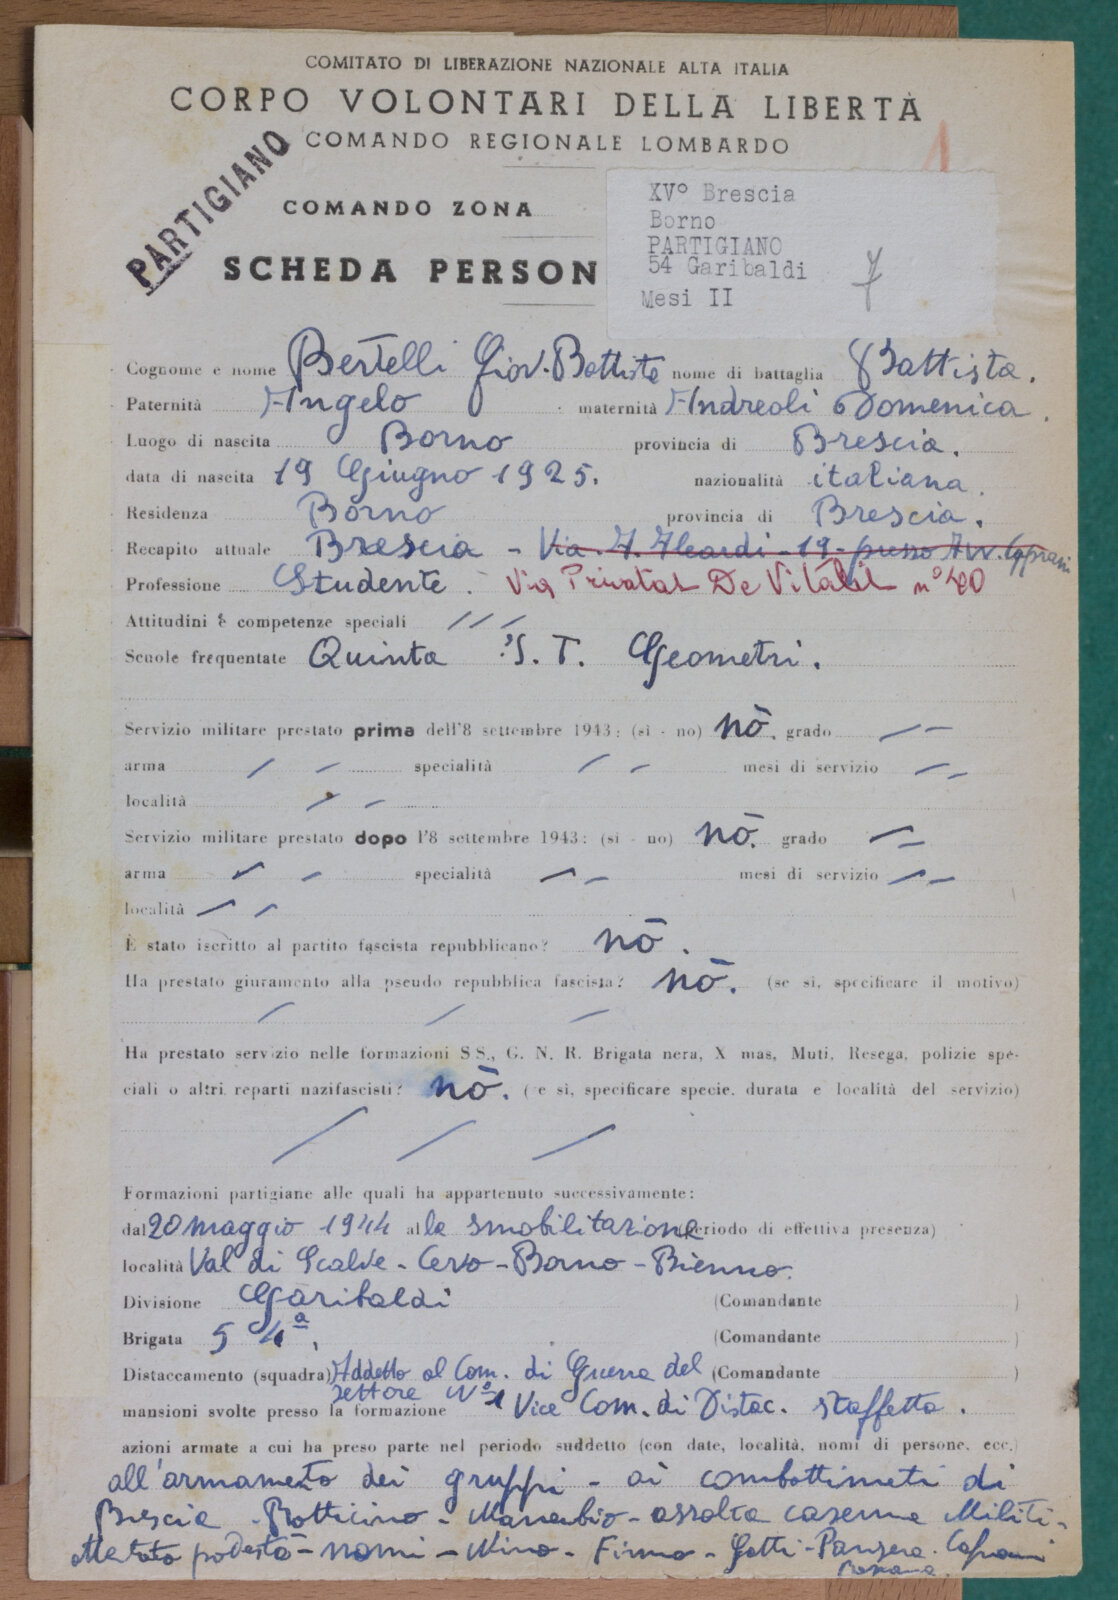 COMITATO DI LIBERAZIONE NAZIONALE ALTA ITALIA
CORPO VOLONTARI DELLA LIBERTÀ
COMANDO REGIONALE LOMBARDO
PARTIGIANO
1
COMANDO ZONA
SCHEDA PERSON
XV° Brescia
Borno
PARTIGIANO
54 Garibaldi
Mesi II
7
Cognome e nome Bertelli Giov. Battista nome di battaglia Battista.
Paternità Angelo maternità Andreoli Domenica.
Luogo di nascita Borno provincia di Brescia.
data di nascita 19 Giugno 1925. nazionalità italiana.
Residenza Borno provincia di Brescia.
Recapito attuale Brescia - Via A. Aleardi - 19 - presso Avv. Caprani
Professione Studente. Via Privata De Vitalis n° 40
Attitudini e competenze speciali
Scuole frequentate Quinta I. T. Geometri.
Servizio militare prestato prima dell'8 settembre 1943: (si - no) nò. grado
arma specialità mesi di servizio
località
Servizio militare prestato dopo l'8 settembre 1943: (si - no) nò. grado
arma specialità mesi di servizio
località
È stato iscritto al partito fascista repubblicano? nò.
Ha prestato giuramento alla pseudo repubblica fascista? nò. (se si, specificare il motivo)
Ha prestato servizio nelle formazioni SS., G. N. R. Brigata nera, X mas, Muti, Resega, polizie spe-
ciali o altri reparti nazifascisti? nò. (se si, specificare specie, durata e località del servizio)
Formazioni partigiane alle quali ha appartenuto successivamente:
dal 20 maggio 1944 al la smobilitazione (periodo di effettiva presenza)
località Val di Scalve - Cervo - Borno - Bienno.
Divisione Garibaldi (Comandante )
Brigata 54ª. (Comandante )
Distaccamento (squadra) Addetto al Com. di Guerra del (Comandante )
settore N° 1
mansioni svolte presso la formazione Vice Com. di Distac. staffetta.
azioni armate a cui ha preso parte nel periodo suddetto (con date, località, nomi di persone, ecc.)
all'armamento dei gruppi - ai combattimeti di
Brescia - Botticino - Manerbio - assalto caserme Militi -
podestà - nomi - Nino - Firmo - Gatti - Panzera - Caprani